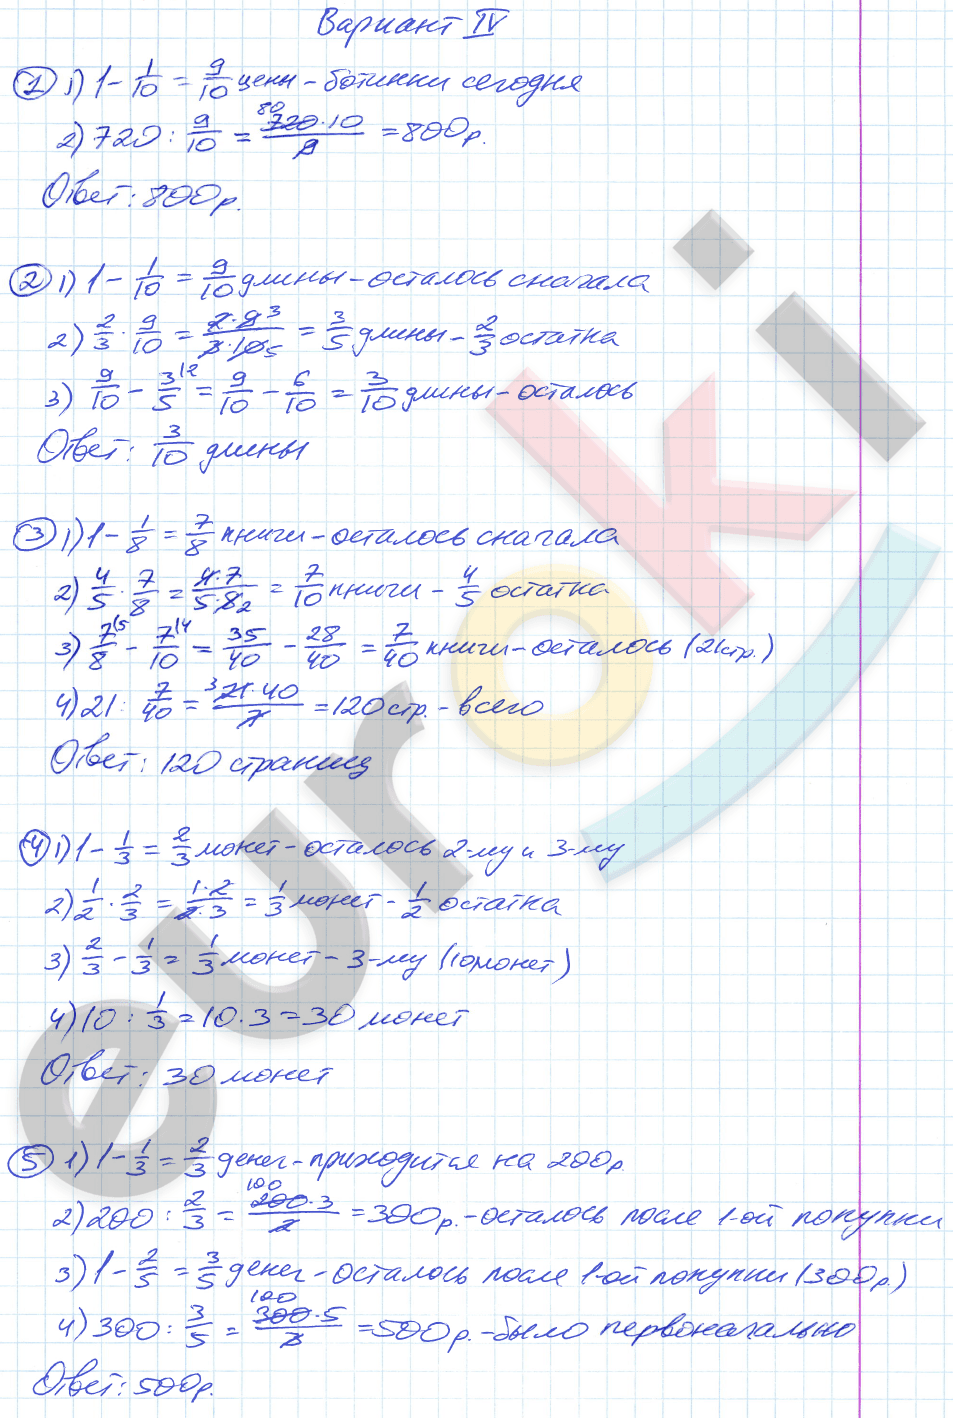 Вариант IV
① 1) 1 - 1/10 = 9/10 цены - ботинки сегодня
2) 720 : 9/10 = 720·10/9 = 800р.
80
Ответ: 800р.
② 1) 1 - 1/10 = 9/10 длины - осталось сначала
2) 2/3 · 9/10 = 2·9 3/3·10 5 = 3/5 длины - 2/3 остатка
3) 9/10 - 3/5 |2 = 9/10 - 6/10 = 3/10 длины - осталось
Ответ: 3/10 длины
③ 1) 1 - 1/8 = 7/8 книги - осталось сначала
2) 4/5 · 7/8 = 4·7/5·8 2 = 7/10 книги - 4/5 остатка
3) 7/8 |5 - 7/10 |4 = 35/40 - 28/40 = 7/40 книги - осталось (21стр.)
4) 21 : 7/40 = 3 21·40/7 = 120 стр. - всего
Ответ: 120 страниц
④ 1) 1 - 1/3 = 2/3 монет - осталось 2-му и 3-му
2) 1/2 · 2/3 = 1·2/2·3 = 1/3 монет - 1/2 остатка
3) 2/3 - 1/3 = 1/3 монет - 3-му (10 монет)
4) 10 : 1/3 = 10·3 = 30 монет
Ответ: 30 монет
⑤ 1) 1 - 1/3 = 2/3 денег - приходится на 200р.
2) 200 : 2/3 = 100 200·3/2 = 300р. - осталось после 1-ой покупки
3) 1 - 2/5 = 3/5 денег - осталось после 1-ой покупки (300р.)
4) 300 : 3/5 = 100 300·5/3 = 500р. - было первоначально
Ответ: 500р.
euroki